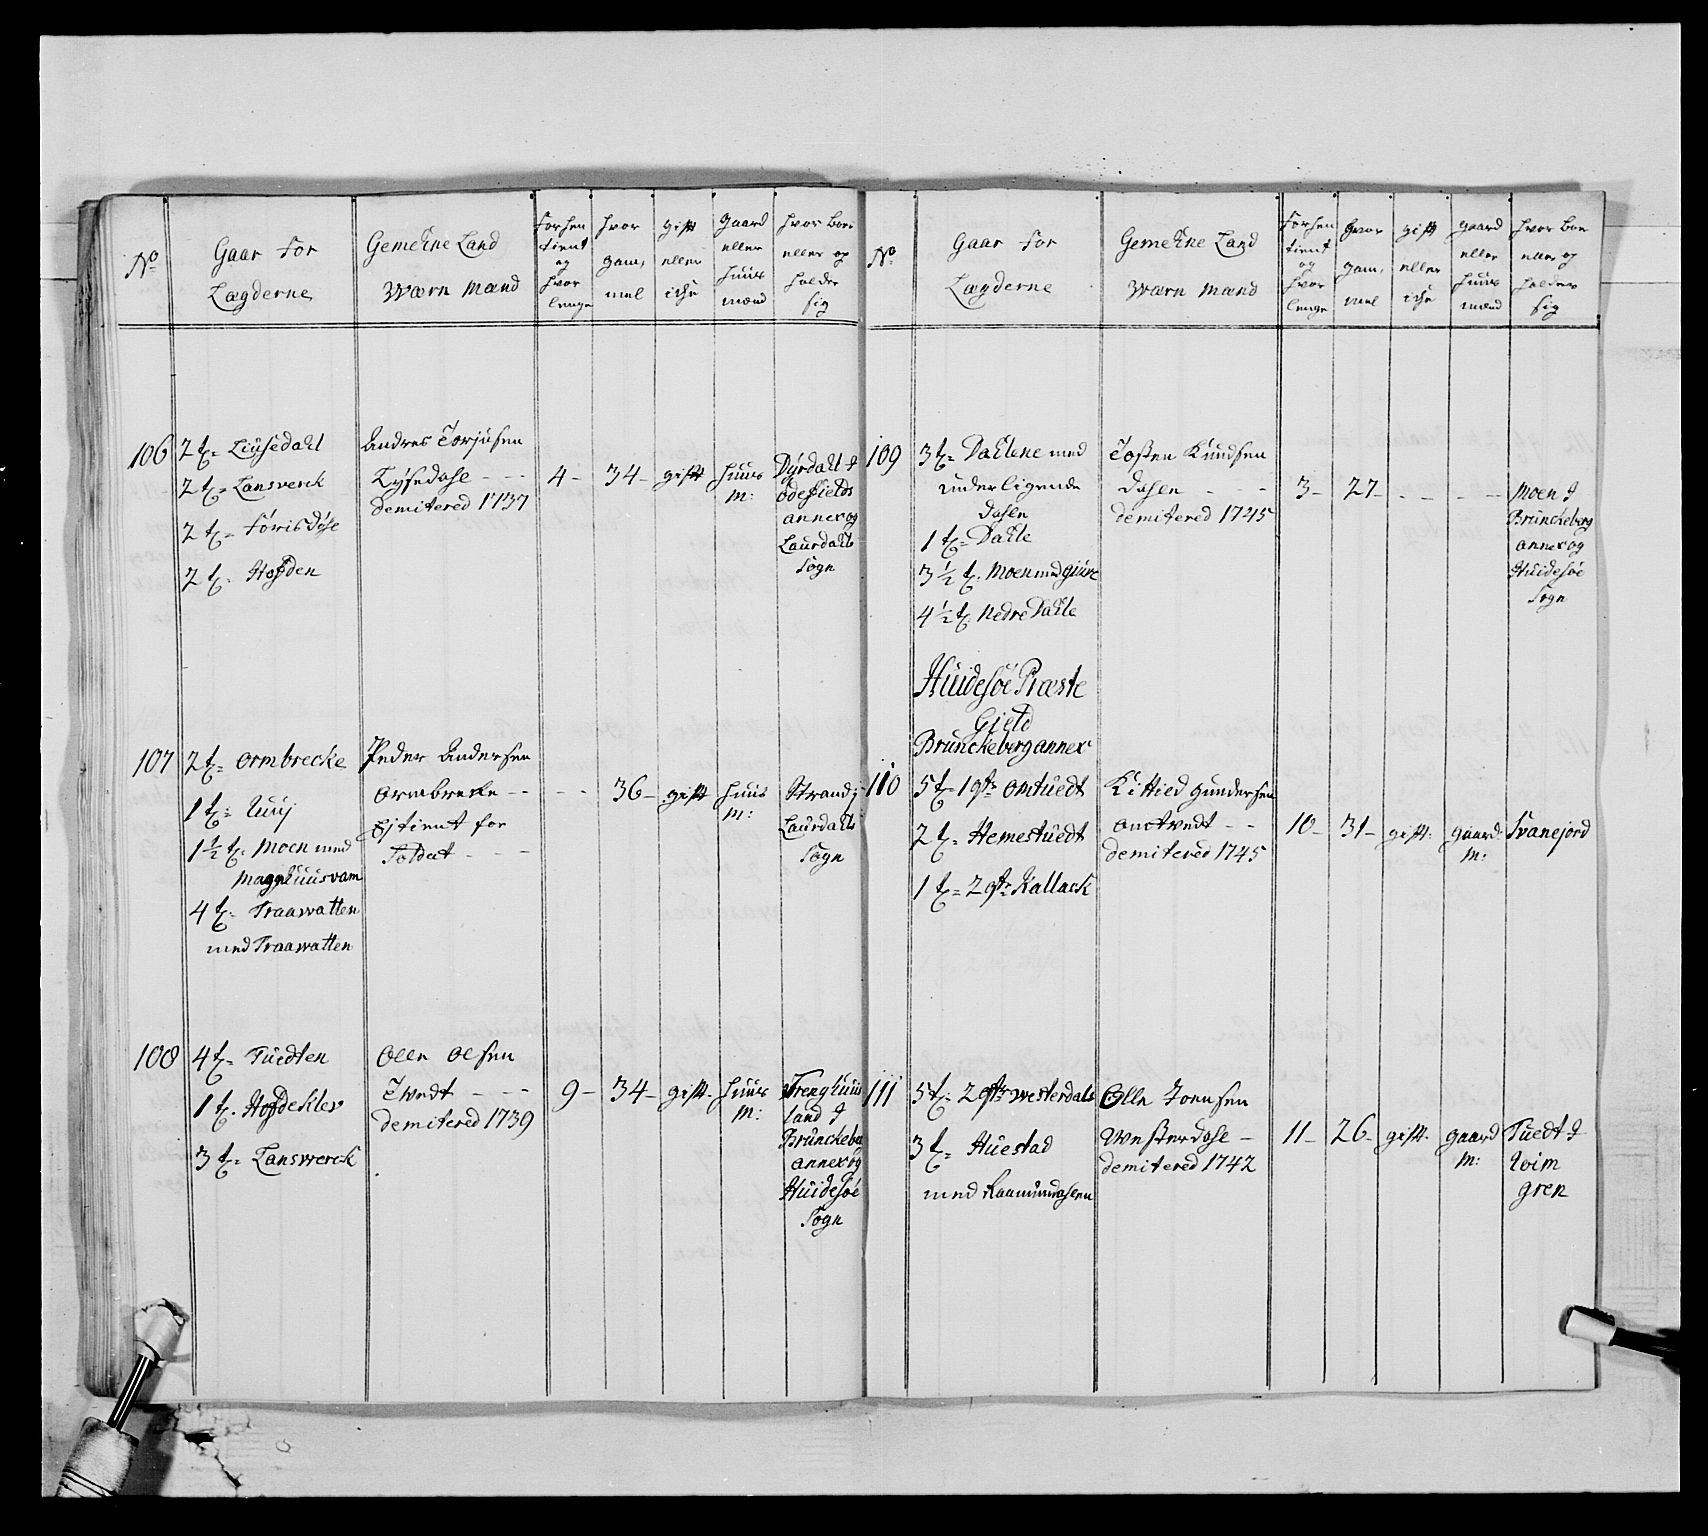 No
Gaar for
Lægderne
Gemehne Land
Wærn Mænd
forhen
tient
og
hvor
lenge
hvor
gam,
mel
gift
eller
iche
gaard
eller
huus
mænd
hvor boe
eller op
holder
sig
106
2 tz= Liusedahl
2 tz= Lansverck
2 tz= Forisdøse
2 tz. Hofden
Andres Torjusen
Lysedahle - - -
demitered 1737
4 -
34 -
gift
huus
M:
Dyrdahl I
Odefields
annex og
Laurdahls
Sogn
107
2 tz= Ormbrecke
1 tz=
1 1/2 tz. Moen med
Magnhuusvam
4 tz. Traawatten
med Traawatten
Peder Andersen
Ormbreke - -
Ej tient for
Soldat - - -
- -
36 -
gift
huus
M:
Strand j
Laurdahls
Sogn
108
4 tz= Tuedten
1 tz. Hofdeklev
3 tz= Lanswerck
Olle Olsen
Tvedt - - -
demitered 1739
9 -
34 -
gift.
huus
M:
Trenghuus
land I
Brunckeber
annex og
Huidesøe
Sogn
No
Gaar for
Lægderne
Gemehne Land
Wærn Mænd
forhen
tient
og
hvor
lenge
hvor
gam,
mel
gift
eller
iche
gaard
eller
huus
mænd
hvor boe
eller op
holder
sig
109
3 tz= Dahlene med
underligende
Dahlen
1 tz= Dahle
3 1/2 tz. Moen med giure
4 1/2 tz. Nedre Dahle
Tosten Knudsen
Dahlen - - -
demitered 1745
3 -
27 -
- -
- - -
Moen I
Brunckeberg
annex og
Huidesøe
Sogn
Huidesøe Præste
Gield
Brunckeberg annex
110
5 tz 1 qtr Omtuedt
2 tz= Hemestuedt
1 tz= 2 qtr Kallack
Kittied Gundersen
Omtvedt - -
demitered 1745
10 -
31 -
gift.
gaard.
M:
Svanejord
111
5 tz. 2 qtr Westerdals
3 tz= Huestad
med Raamundahlen
Olle Joensen
Westerdahle -
demitered 1742
11 -
26 -
gift.
gaard
M:
Tuedt I
Hoim
gren